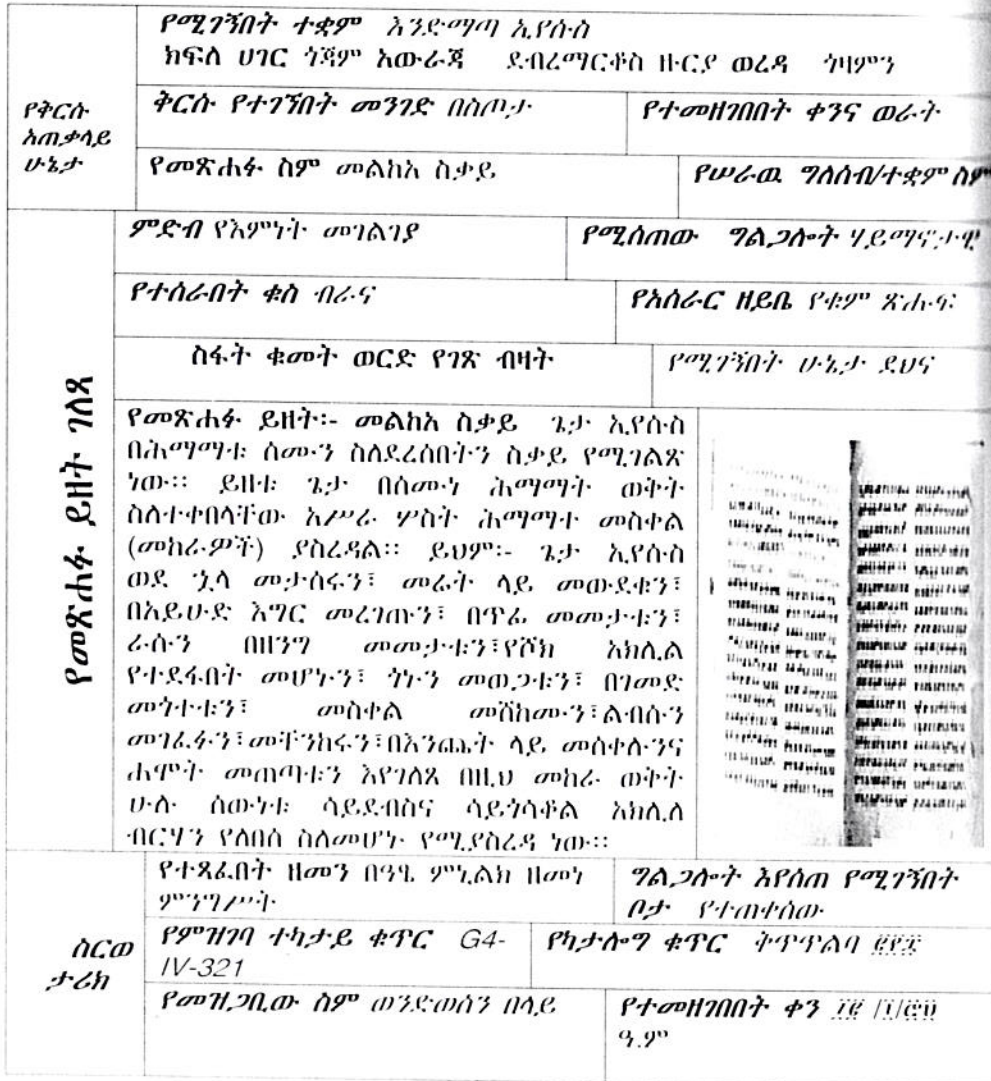 የሚገኝበት ተቋም እንድማጣ ኢየሱስ
ክፍለ ሀገር ጎጃም አውራጃ ደብረማርቆስ ዙርያ ወረዳ ጎዛምን
የቅርሱ አጠቃላይ ሁኔታ
ቅርሱ የተገኘበት መንገድ በስጦታ
የተመዘገበበት ቀንና ወራት
የመጽሐፉ ስም መልከአ ስቃይ
የሠራዉ ግለሰብ/ተቋም ስም
የመጽሐፉ ይዘት ገለጻ
ምድብ የእምነት መገልገያ
የሚሰጠው ግልጋሎት ሃይማኖታዊ
የተሰራበት ቁስ ብራና
የአሰራር ዘይቤ የቁም ጽሑፍ
ስፋት ቁመት ወርድ የገጽ ብዛት
የሚገኝበት ሁኔታ ደህና
የመጽሐፉ ይዘት፡- መልከአ ስቃይ ጌታ ኢየሱስ
በሕማማቱ ሰሙን ስለደረሰበትን ስቃይ የሚገልጽ
ነው፡፡ ይዘቱ ጌታ በሰሙነ ሕማማት ወቅት
ስለተቀበላቸው አሥራ ሦስት ሕማማተ መስቀል
(መከራዎች) ያስረዳል፡፡ ይህም፡- ጌታ ኢየሱስ
ወደ ኋላ መታሰሩን፣ መሬት ላይ መውደቁን፣
በአይሁድ እግር መረገጡን፣ በጥፊ መመታቱን፣
ራሱን በዘንግ መመታቱን፣የሾክ አክሊል
የተደፋበት መሆኑን፣ ጎኑን መወጋቱን፣ በገመድ
መጎተቱን፣ መስቀል መሸከሙን፣ልብሱን
መገፈፉን፣መቸንከሩን፣በእንጨት ላይ መሰቀሉንና
ሐሞት መጠጣቱን እየገለጸ በዚህ መከራ ወቅት
ሁሉ ሰውነቱ ሳይደብስና ሳይጎሳቆል አክሊለ
ብርሃን የለበሰ ስለመሆኑ የሚያስረዳ ነው፡፡
ስርወ ታሪክ
የተጻፈበት ዘመን በዓፄ ምኒልክ ዘመነ
ምንግሥት
ግልጋሎት እየሰጠ የሚገኝበት
ቦታ የተጠቀሰው
የምዝገባ ተካታይ ቁጥር G4-
IV-321
የካታሎግ ቁጥር ቅጥጥልባ
የመዝጋቢው ስም ወንድወሰን በላይ
የተመዘገበበት ቀን
ዓ.ም